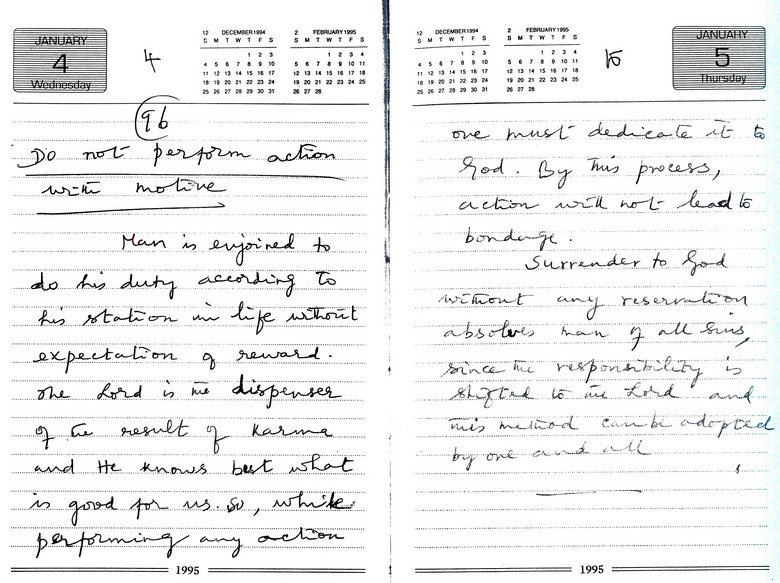 JANUARY
4
Wednesday
4
12 DECEMBER 1994
S M T W T F S
1 2 3
4 5 6 7 8 9 10
11 12 13 14 15 16 17
18 19 20 21 22 23 24
25 26 27 28 29 30 31
2 FEBRUARY 1995
S M T W T F S
1 2 3 4
5 6 7 8 9 10 11
12 13 14 15 16 17 18
19 20 21 22 23 24 25
26 27 28
96
Do not perform action
with motive
Man is enjoined to
do his duty according to
his station in life without
expectation of reward.
The Lord is the dispenser
of the result of Karma
and He knows best what
is good for us. So, while
performing any action
1995
12 DECEMBER 1994
S M T W T F S
1 2 3
4 5 6 7 8 9 10
11 12 13 14 15 16 17
18 19 20 21 22 23 24
25 26 27 28 29 30 31
2 FEBRUARY 1995
S M T W T F S
1 2 3 4
5 6 7 8 9 10 11
12 13 14 15 16 17 18
19 20 21 22 23 24 25
26 27 28
JANUARY
5
Thursday
one must dedicate it to
God. By this process,
action will not lead to
bondage.
Surrender to God
without any reservation
absolves man of all sins,
since the responsibility is
shifted to the Lord and
this method can be adopted
by one and all
1995